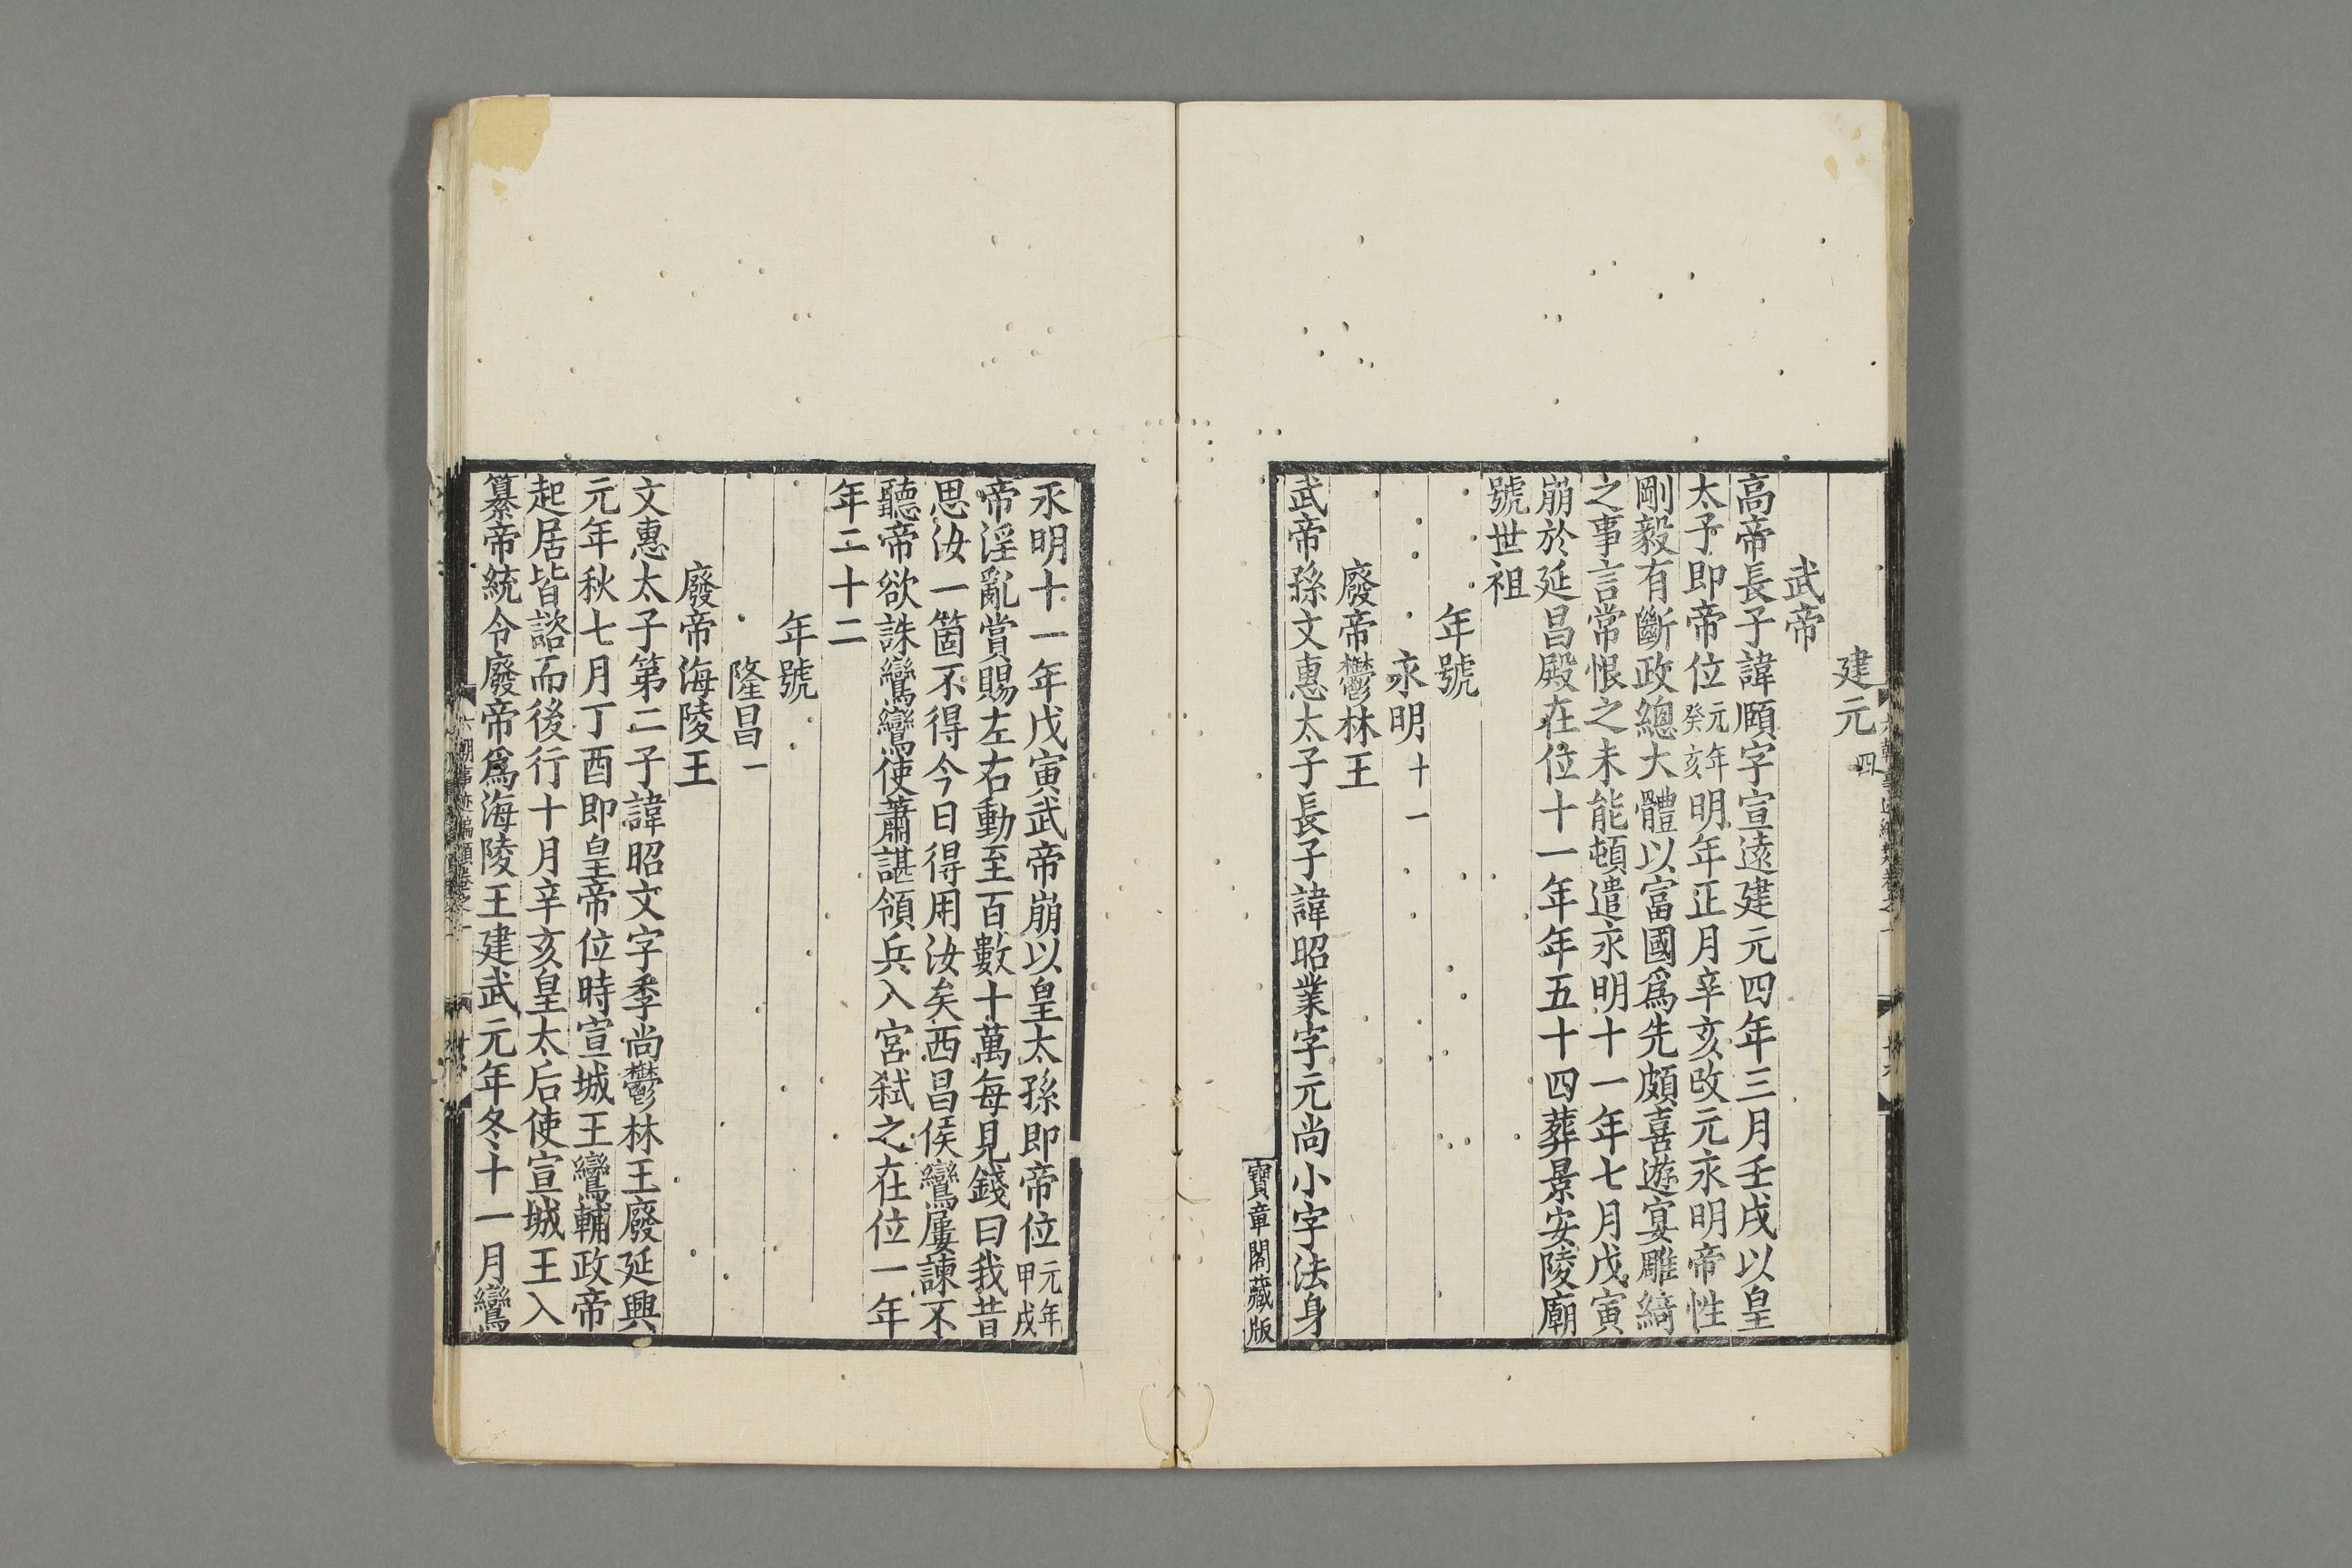 建元四
武帝
高帝長子諱頤字宣遠建元四年三月壬戌以皇
太子即帝位元年癸亥明年正月辛亥改元永明帝性
剛毅有斷政總大體以富國爲先頗喜遊宴雕綺
之事言常恨之未能頓遣永明十一年七月戊寅
崩於延昌殿在位十一年年五十四葬景安陵廟
號世祖
年號
永明十一
廢帝鬱林王
武帝孫文惠太子長子諱昭業字元尚小字法身
寶章閣藏版
永明十一年戊寅武帝崩以皇太孫即帝位元年甲戌
帝淫亂賞賜左右動至百數十萬每見錢曰我昔
思汝一箇不得今日得用汝矣西昌侯鸞屢諫不
聽帝欲誅鸞鸞使蕭諶領兵入宮弒之在位一年
年二十二
年號
隆昌一
廢帝海陵王
文惠太子第二子諱昭文字季尚鬱林王廢延興
元年秋七月丁酉即皇帝位時宣城王鸞輔政帝
起居皆諮而後行十月辛亥皇太后使宣城王入
纂帝統令廢帝爲海陵王建武元年冬十一月鸞
六朝事迹編類卷之一